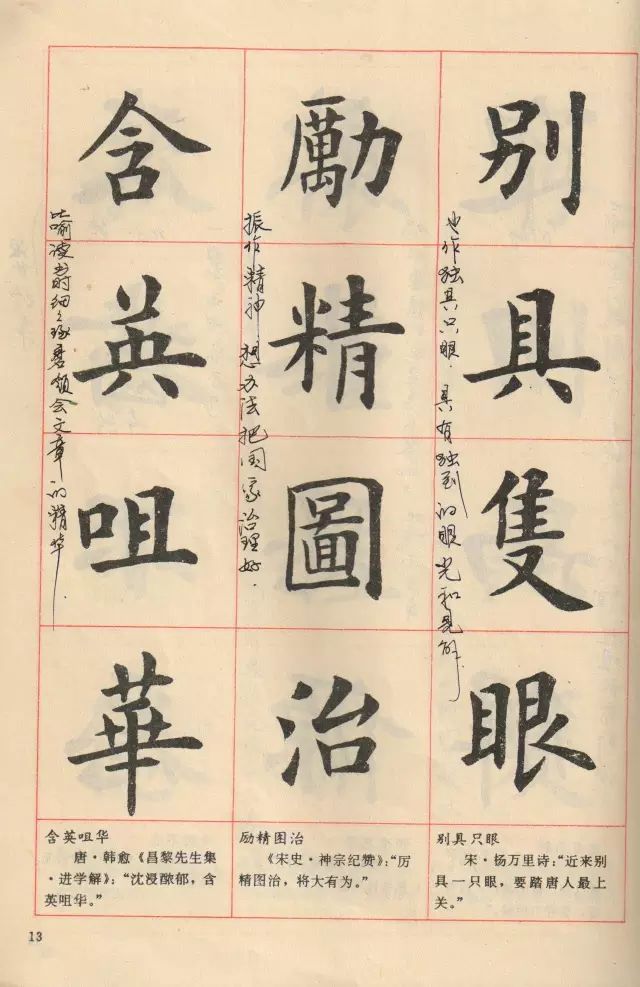 别具隻眼
也作独具只眼．具有独到的眼光和见解．
勵精圖治
振作精神 想办法把国家治理好．
含英咀華
比喻读书时细细琢磨领会文章的精华．
含英咀华
唐·韩愈《昌黎先生集
·进学解》：“沈浸醲郁，含
英咀华。”
励精图治
《宋史·神宗纪赞》：“厉
精图治，将大有为。”
别具只眼
宋·杨万里诗：“近来别
具一只眼，要踏唐人最上
关。”
13